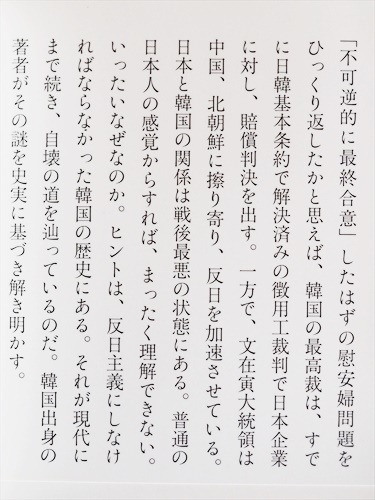 「不可逆的に最終合意」したはずの慰安婦問題を
ひっくり返したかと思えば、韓国の最高裁は、すで
に日韓基本条約で解決済みの徴用工裁判で日本企業
に対し、賠償判決を出す。一方で、文在寅大統領は
中国、北朝鮮に擦り寄り、反日を加速させている。
日本と韓国の関係は戦後最悪の状態にある。普通の
日本人の感覚からすれば、まったく理解できない。
いったいなぜなのか。ヒントは、反日主義にしなけ
ればならなかった韓国の歴史にある。それが現代に
まで続き、自壊の道を辿っているのだ。韓国出身の
著者がその謎を史実に基づき解き明かす。